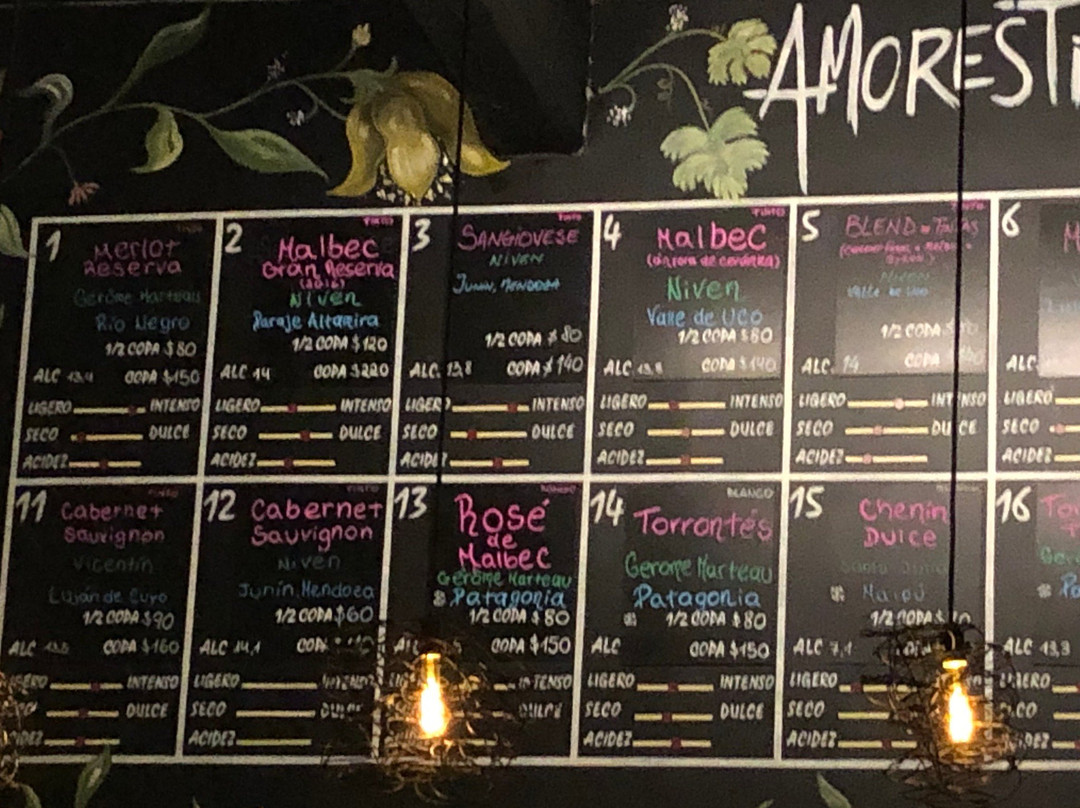 AMOREST
1
Merlot
Reserva
Gerome Marteau
Río Negro
1/2 COPA $80
ALC 13,4 COPA $150
LIGERO INTENSO
SECO DULCE
ACIDEZ
2
TINTO
Malbec
Gran Reserva
(2016)
Niven
Paraje Altamira
1/2 COPA $120
ALC 14 COPA $220
LIGERO INTENSO
SECO DULCE
ACIDEZ
3
TINTO
SANGIOVESE
NIVEN
JUNIN, MENDOZA
1/2 COPA $80
ALC. 13,8 COPA $140
LIGERO INTENSO
SECO DULCE
ACIDEZ
4
TINTO
Malbec
Niven
Valle de UCO
1/2 COPA $80
ALC 13,8 COPA $140
LIGERO INTENSO
SECO DULCE
ACIDEZ
5
BLEND
Valle de Uco
1/2 COPA
ALC. 14 COPA
LIGERO INTENSO
SECO DULCE
ACIDEZ
6
M
ALC.
LIGERO
SECO
ACIDEZ
11
Cabernet
Sauvignon
Vicentín
Luján de Cuyo
1/2 COPA $90
ALC COPA $160
INTENSO
DULCE
12
Cabernet
Sauvignon
Niven
Junín, Mendoza
1/2 COPA $60
ALC 14,1
LIGERO INTENSO
SECO DULCE
ACIDEZ
13
Rosé
de
Malbec
Gerome Marteau
Patagonia
1/2 COPA $80
COPA $150
INTENSO
DULCE
14
BLANCO
Torrontés
Gerome Marteau
Patagonia
1/2 COPA $80
ALC COPA $150
LIGERO INTENSO
SECO DULCE
ACIDEZ
15
Chenin
DULCE
Maipú
1/2 COPA
ALC 7,1
LIGERO
SECO
ACIDEZ
16
ALC 13,3